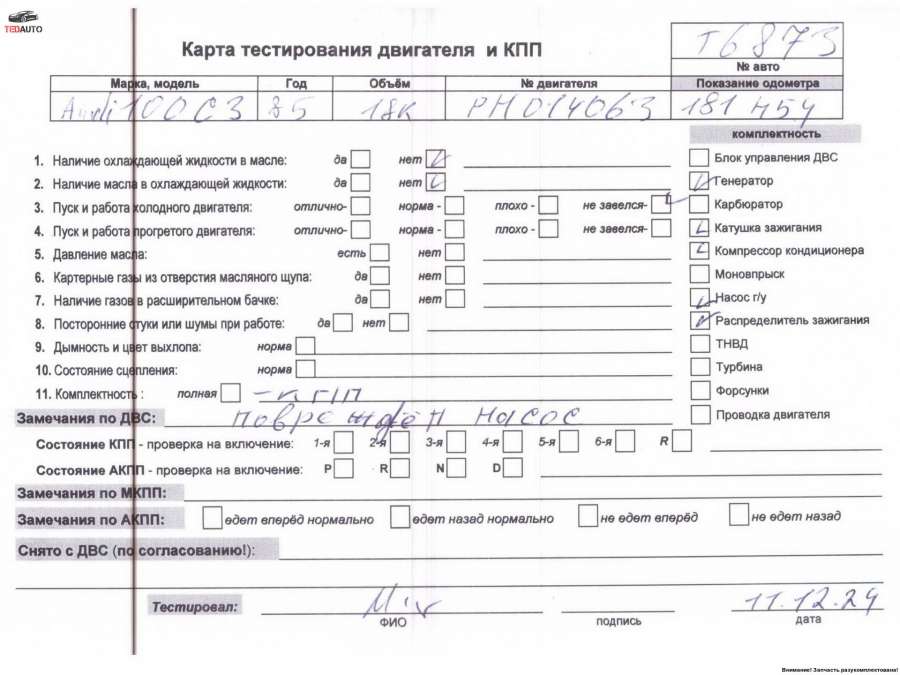 TEDAUTO
Карта тестирования двигателя и КПП
Т6873
№ авто
Марка, модель Год Объём № двигателя Показание одометра
Audi 100 C3 85 1.8К PH014063 181 454
комплектность
1. Наличие охлаждающей жидкости в масле: да нет
Блок управления ДВС
2. Наличие масла в охлаждающей жидкости: да нет
Генератор
3. Пуск и работа холодного двигателя: отлично- норма - плохо - не завелся-
Карбюратор
4. Пуск и работа прогретого двигателя: отлично- норма - плохо - не завелся-
Катушка зажигания
5. Давление масла: есть нет
Компрессор кондиционера
6. Картерные газы из отверстия масляного щупа: да нет
Моновпрыск
7. Наличие газов в расширительном бачке: да нет
Насос г/у
8. Посторонние стуки или шумы при работе: да нет
Распределитель зажигания
9. Дымность и цвет выхлопа: норма
ТНВД
10. Состояние сцепления: норма
Турбина
11. Комплектность : полная - КПП
Форсунки
Замечания по ДВС: повреждён насос
Проводка двигателя
Состояние КПП - проверка на включение: 1-я 2-я 3-я 4-я 5-я 6-я R
Состояние АКПП - проверка на включение: P R N D
Замечания по МКПП:
Замечания по АКПП: едет вперёд нормально едет назад нормально не едет вперёд не едет назад
Снято с ДВС (по согласованию!):
Тестировал: 11.12.24
ФИО подпись дата
Внимание! Запчасть разукомплектована!